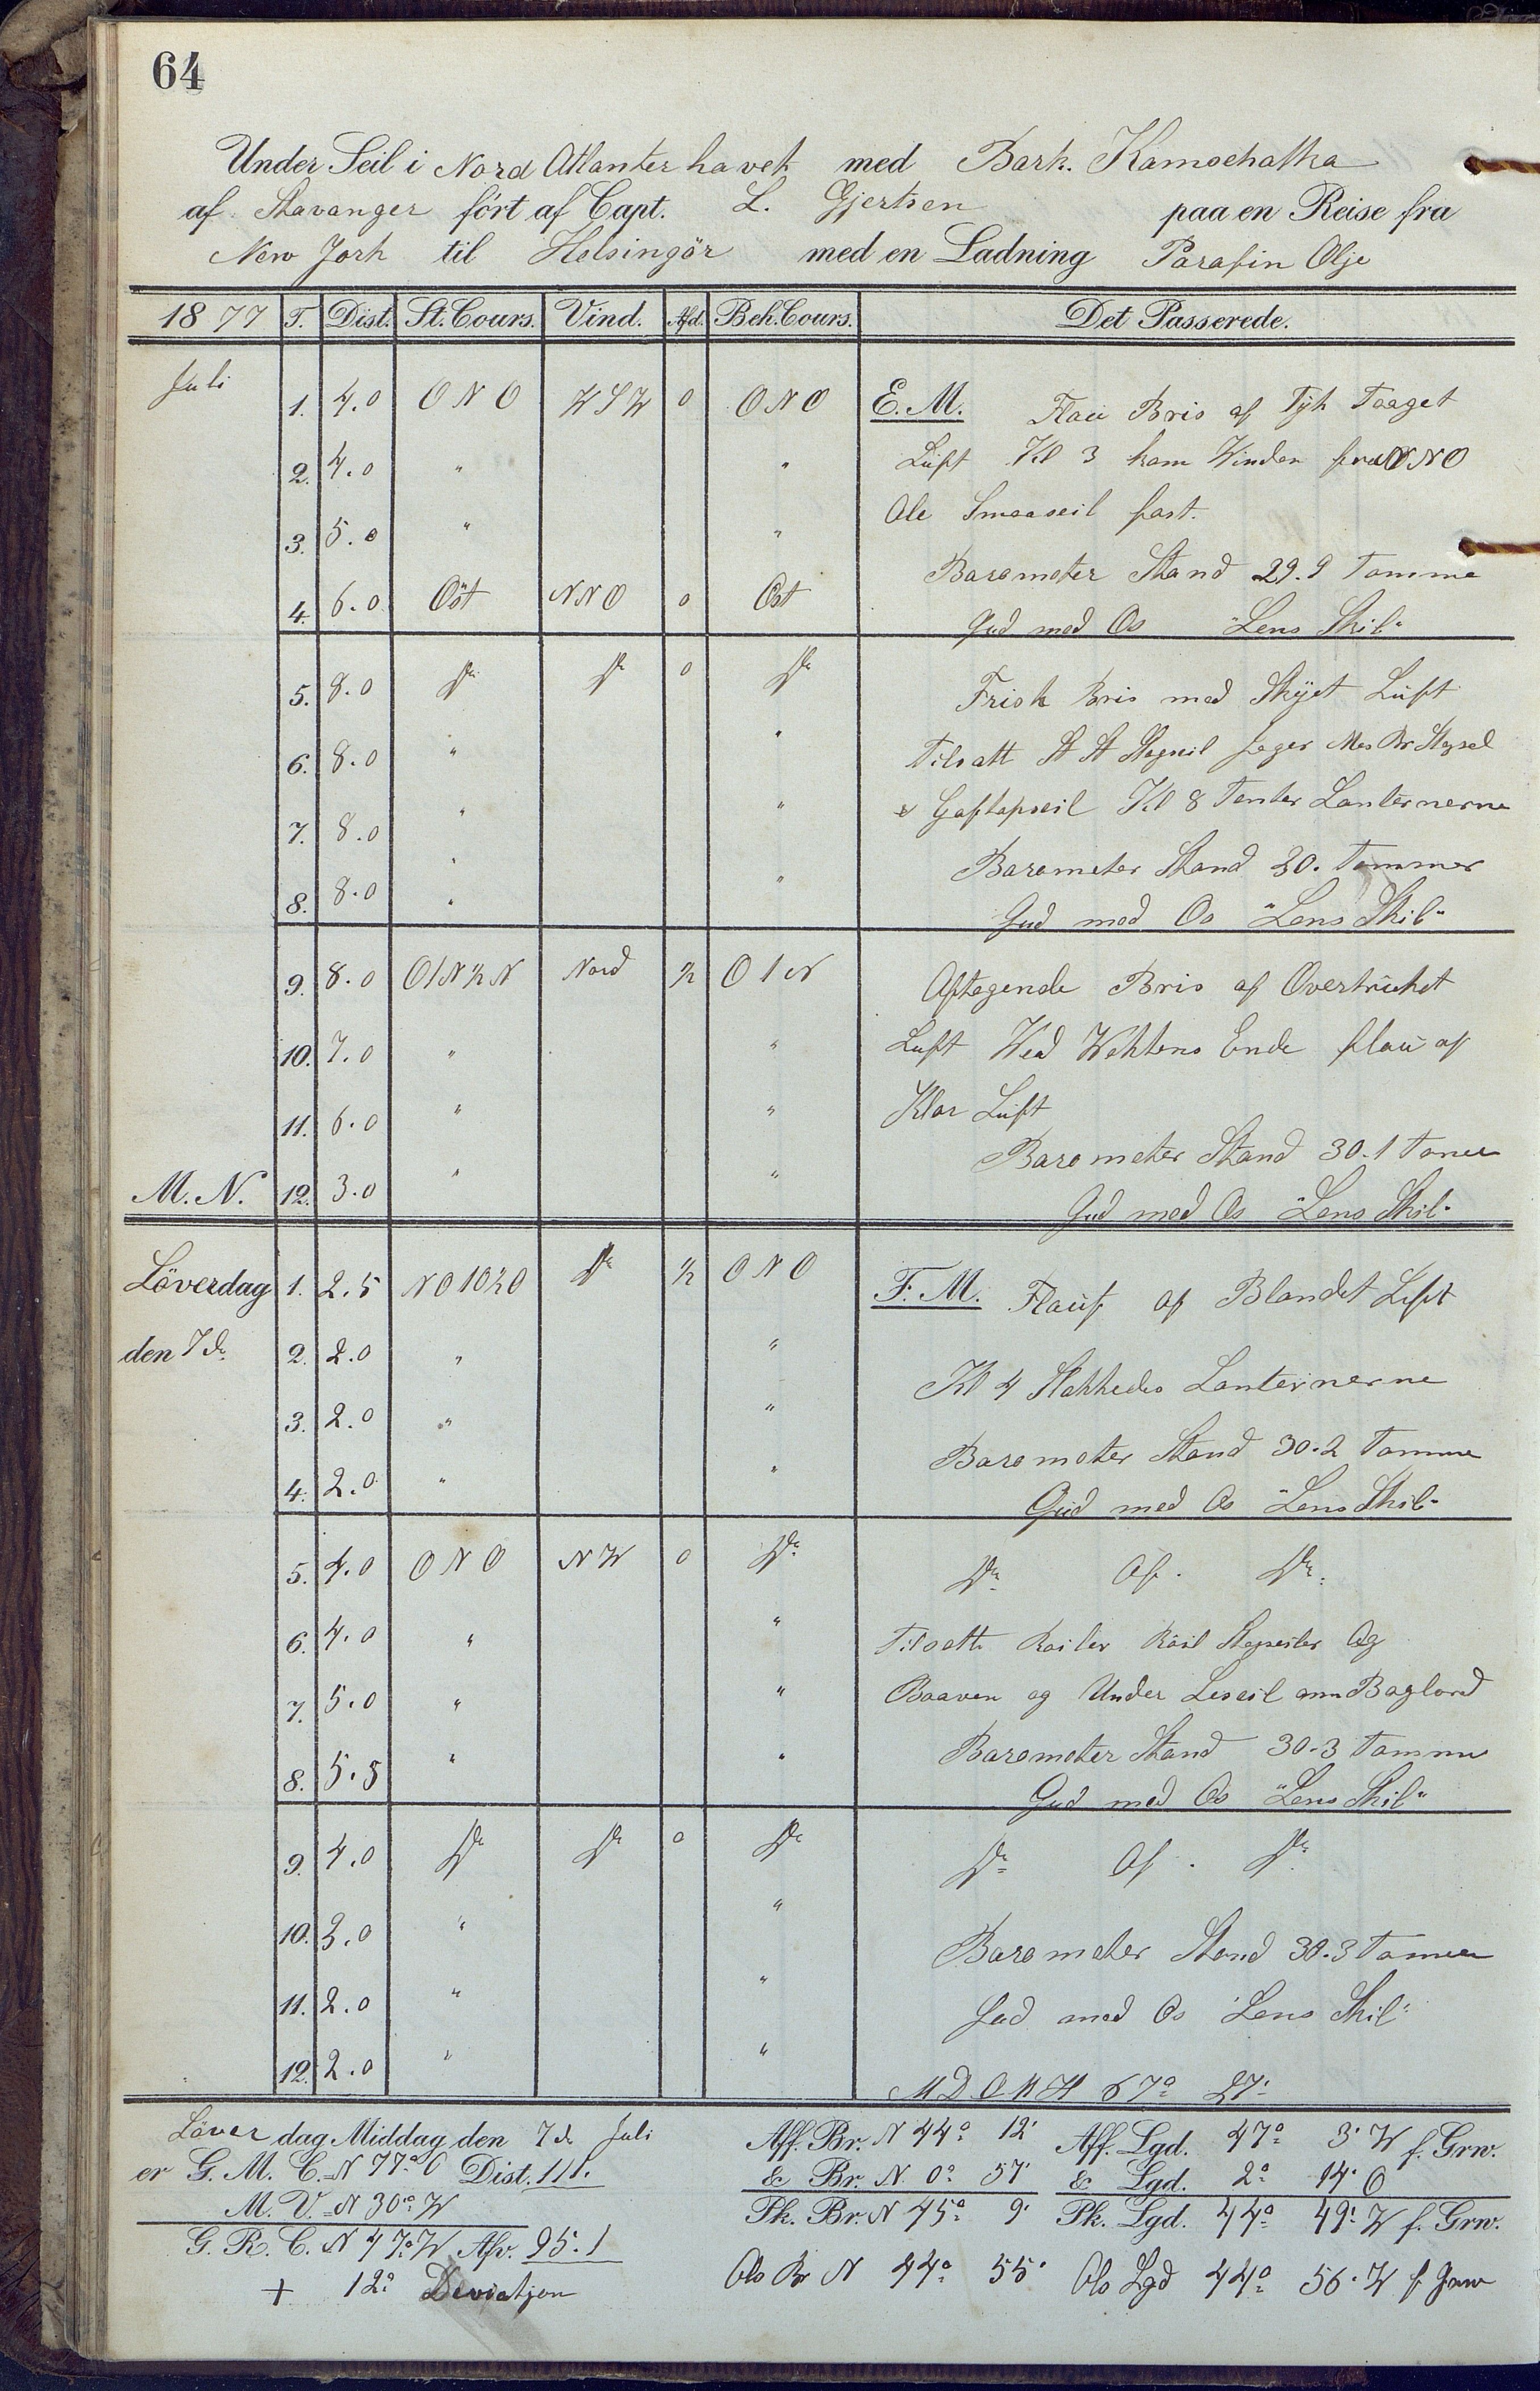 64
Under Seil i Nord Atlanter havet med Bark. Kamschatka
af Stavanger fört af Capt. L. Gjertsen paa en Reise fra
New York til Helsingör med en Ladning Parafin Olje
1877 T. Dist. St. Cours. Vind. Afd. Beh. Cours. Det Passerede.
Juli
1. 4.0 O N O W S W 0 O N O E. M. Flau Bris af Tyk Taaget
2. 4.0 " " Luft Kl 3 kom Vinden fra NNO
3. 5.0 " " Ale Smaaseil fast.
Barometer Stand 29.9 Tomme
4. 6.0 Öst NNO 0 Ost
Gud med Os "Lens Skib"
5. 8.0 Do Do 0 Do Frisk Bris med Skyet Luft
6. 8.0 " " Tilsatt St St Stagseil Jager Mes Br Stagsel
7. 8.0 " " & Gaftopseil Kl 8 Tentes Lanternerne
Barometer Stand 30. Tommer
8. 8.0 " "
Gud med Os "Lens Skib"
9. 8.0 O1N½N Nord ½ O 1 N Aftagende Bris af Overtrucket
10. 7.0 " " Luft Wed Waktens Ende flau af
11. 6.0 " " Klar Luft
Barometer Stand 30.1 Tomer
M. N. 12. 3.0 " "
Gud med Os "Lens Skib"
Löverdag 1. 2.5 NO1O½O Do ½ O N O F. M. Flau af Blandet Luft
den 7de 2. 2.0 " "
Kl 4 Slakkedes Lanternerne
3. 2.0 " "
Barometer Stand 30.2 Tomme
4. 2.0 " "
Gud med Os "Lens Skib"
5. 4.0 O N O N W 0 Do Do Af. Do
6. 4.0 " " Tilsatt Roiler Röil Stagseiler Og
7. 5.0 " " Baaven og Under Leseil om Bagbord
Barometer Stand 30.3 Tomme
8. 5.5 " "
Gud med Os "Lens Skib"
9. 4.0 Do Do 0 Do Do Af. Do
10. 3.0 " "
Barometer Stand 30.3 Tomer
11. 2.0 " " Gud med Os "Lens Skib"
12. 2.0 " "
M D O M H 67° 27'
Löver dag Middag den 7de Juli Aff. Br. N 44° 12' Aff. Lgd. 47° 3' W f. Grw.
er G. M. C. N 77° O Dist. 111. & Br. N. 0° 57' & Lgd. 2° 14' O
M. V. N 30° W Pk. Br. N 45° 9' Pk. Lgd. 44° 49' W f. Grw.
G. R. C. N 47° W Afv. 95.1
+ 12° Deviatjon Obs Br N 44° 55' Obs Lgd 44° 56' W f Grw